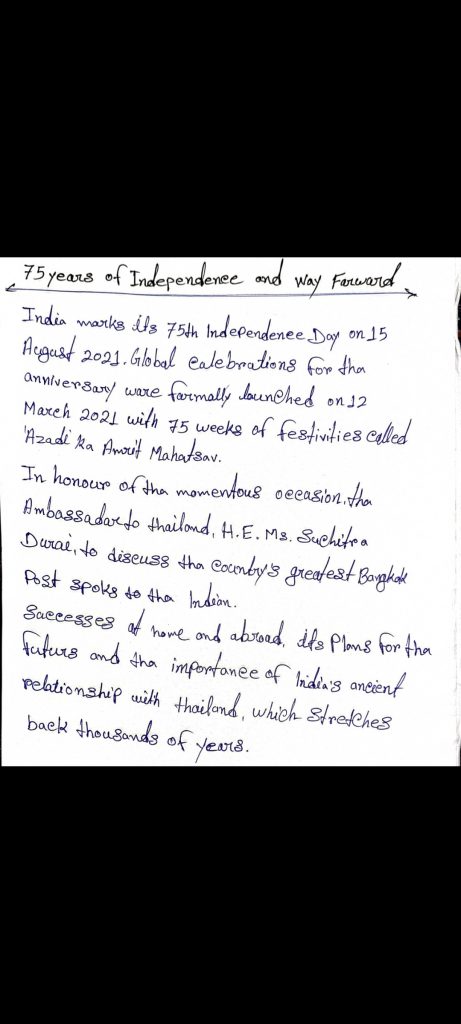 75 years of Independence and Way Forward
India marks its 75th Independence Day on 15
August 2021. Global celebrations for tha
anniversary ware formally launched on 12
March 2021 with 75 weeks of festivities called
'Azadi ka Amrit Mahatsav.
In honour of tha momentous occasion, tha
Ambassador to thailand, H.E. Ms. Suchitra
Durai, to discuss tha country's greatest Bangkok
Post spoks to tha Indian.
Successes at home and abroad, its Plans for tha
futurs and tha importance of India's ancient
relationship with thailand, which stretches
back thousands of years.